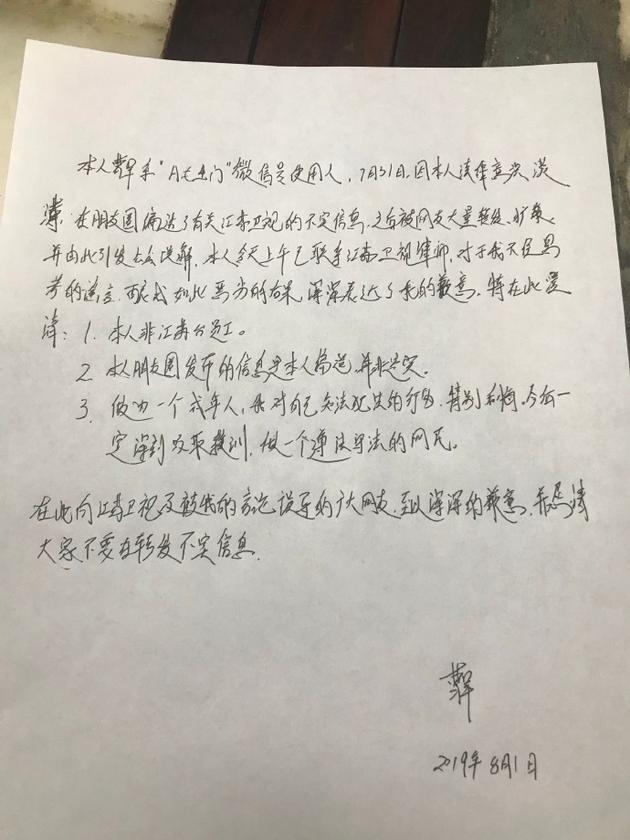 本人 系"月 门"微信号使用人,7月31日,因本人法律意识淡
薄,在朋友圈编造了有关江苏卫视的不实信息,之后被网友大量转发、扩散,
并由此引发社会误解,本人今天上午已联系江苏卫视律师,对于我不经思
考的谣言,酿成如此恶劣的后果,深深表达了我的歉意,特在此澄
清:1. 本人非江苏台员工。
2. 本人朋友圈发布的信息是本人编造,并非是实。
3. 做为一个成年人,我对自己无法犯其的行为,特别后悔,今后一
定深刻汲取教训,做一个遵法守法的网民。
在此向江苏卫视及被我的言论误导的广大网友,至以深深的歉意,并恳请
大家不要在转发不实信息.
2019年8月1日